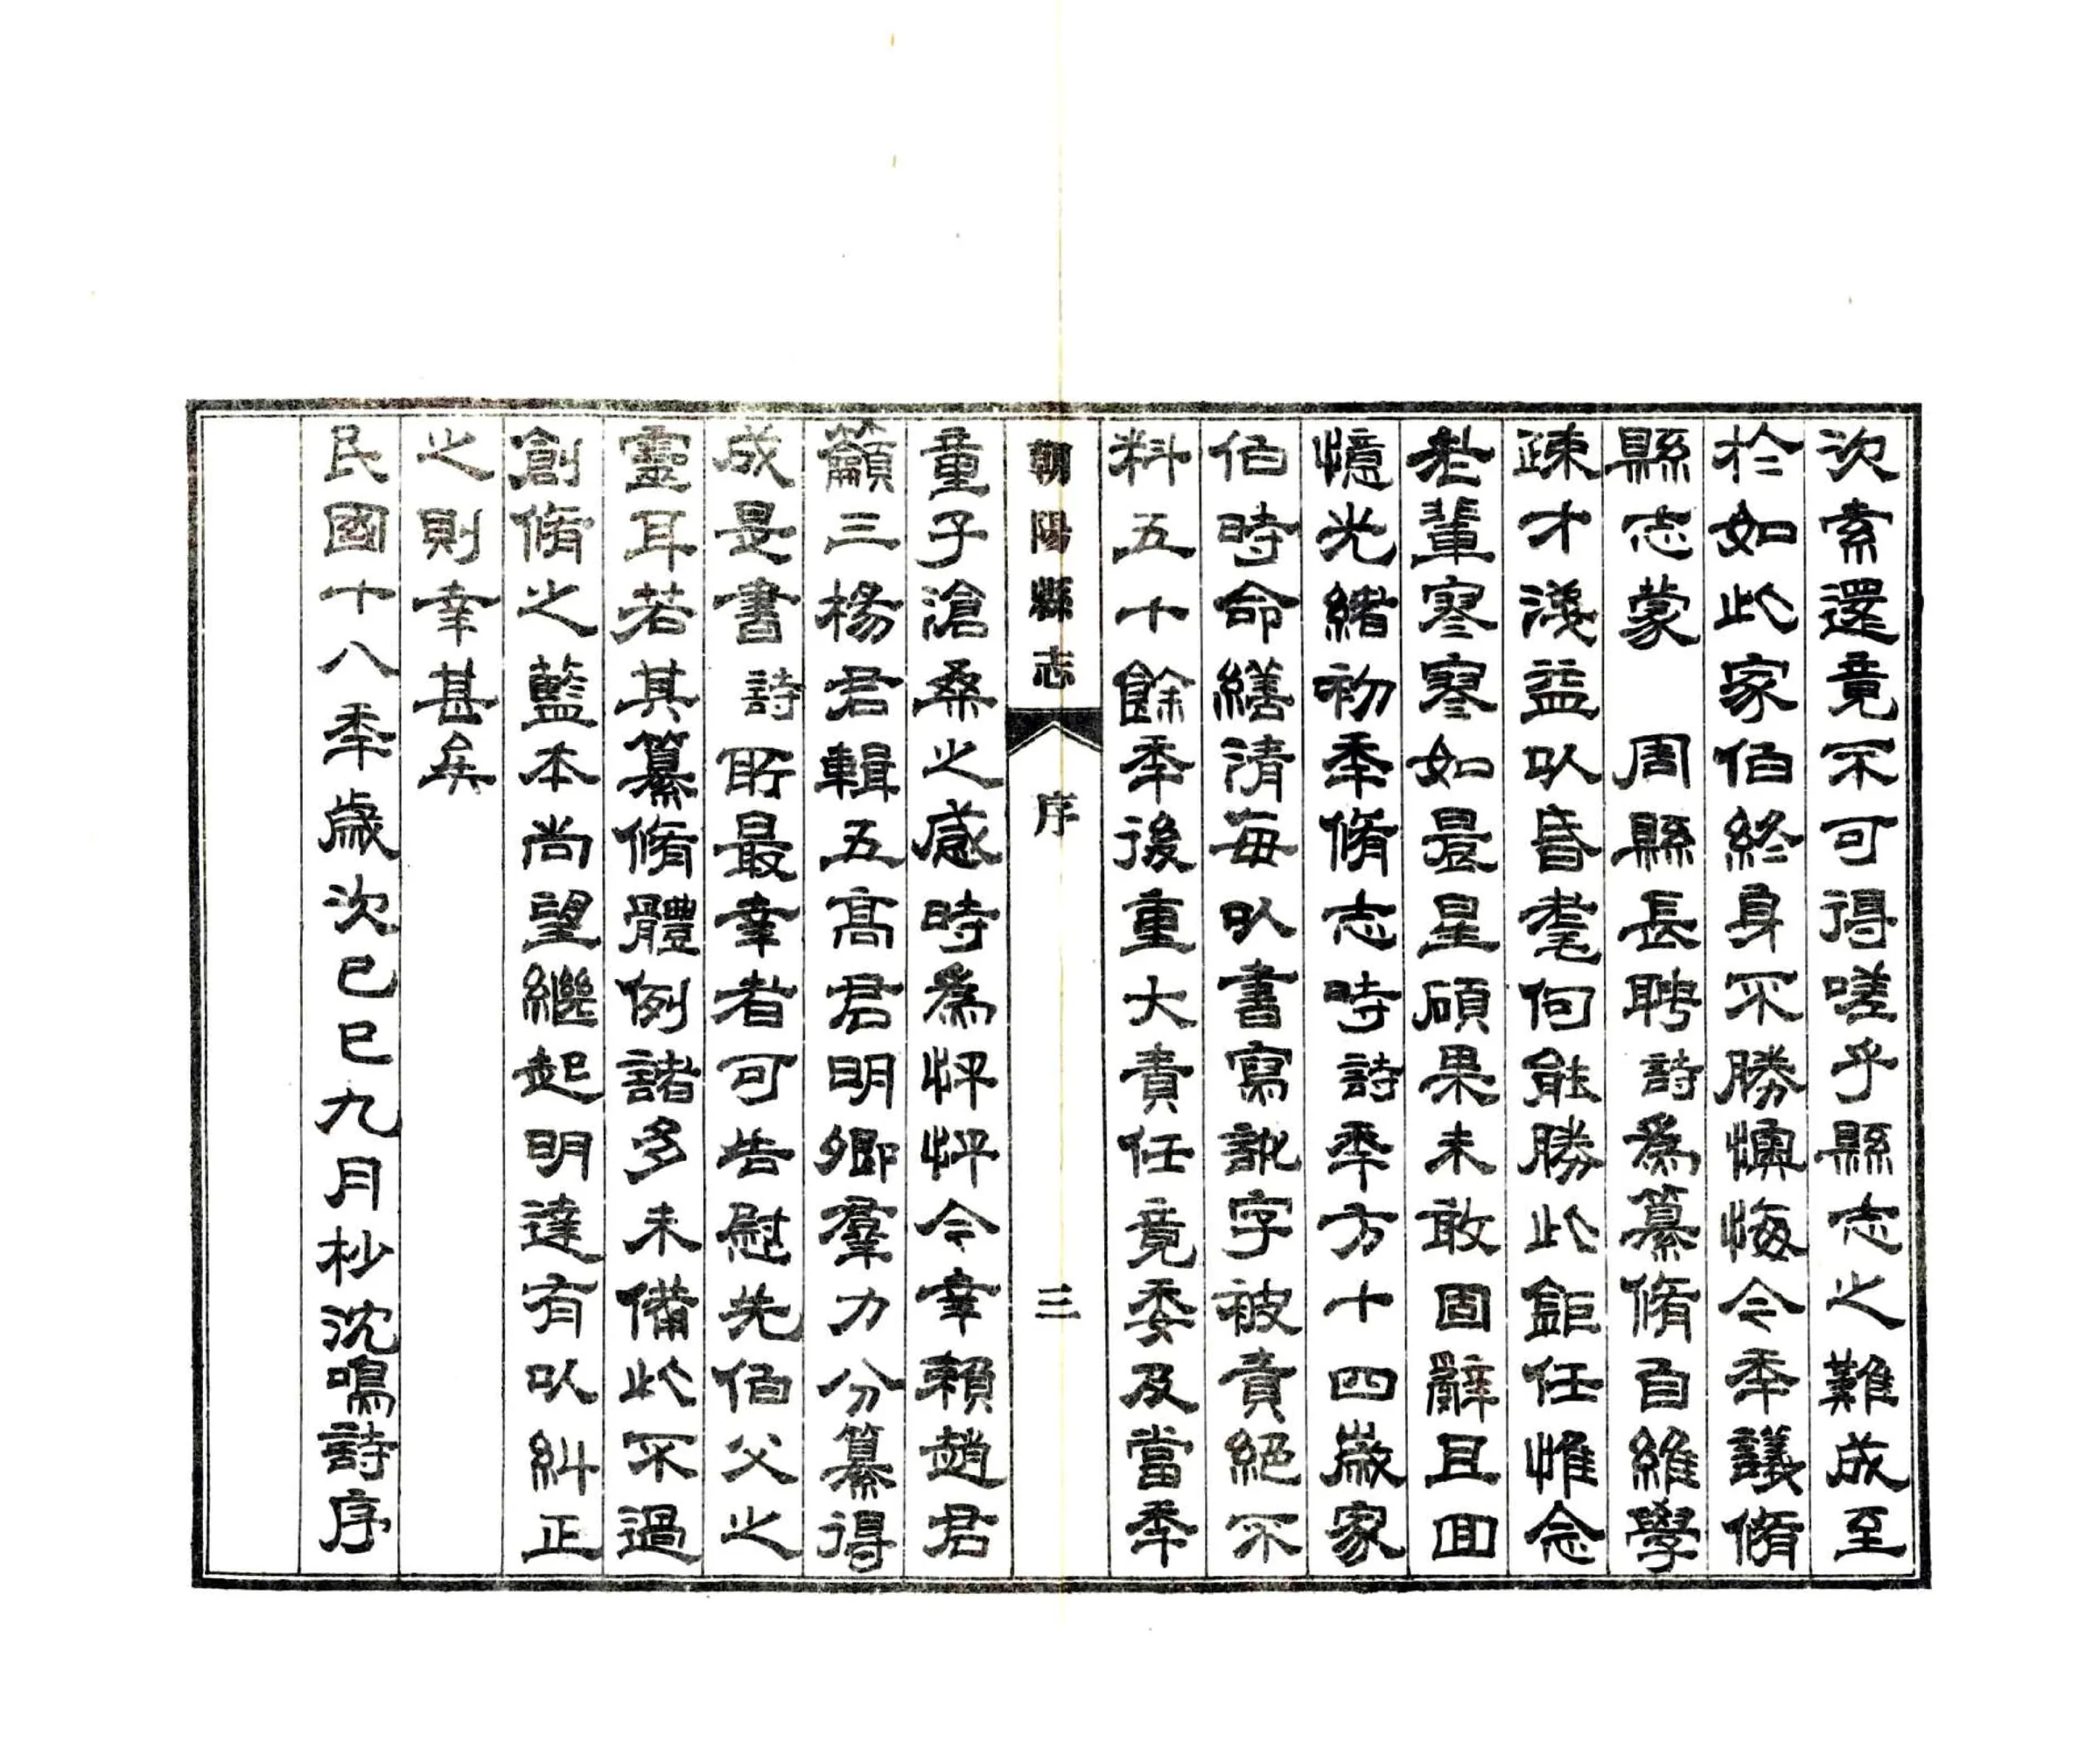 次索還竟不可得嗟乎縣志之難成至
於如此家伯終身不勝懊悔今年議脩
縣志蒙　周縣長聘詩為纂脩自維學
疎才淺益以昏耄何能勝此鉅任惟念
老輩寥寥如晨星碩果未敢固辭且回
憶光緒初年脩志時詩年方十四歲家
伯時命繕清每以書寫訛字被責絕不
料五十餘年後重大責任竟委及當年
朝陽縣志
序
三
童子滄桑之感時為怦怦今幸賴趙君
籲三楊君輯五高君明卿羣力分纂得
成是書詩所最幸者可告慰先伯父之
靈耳若其纂脩體例諸多未備此不過
創脩之藍本尚望繼起明達有以糾正
之則幸甚矣
民國十八年歲次己巳九月杪沈鳴詩序